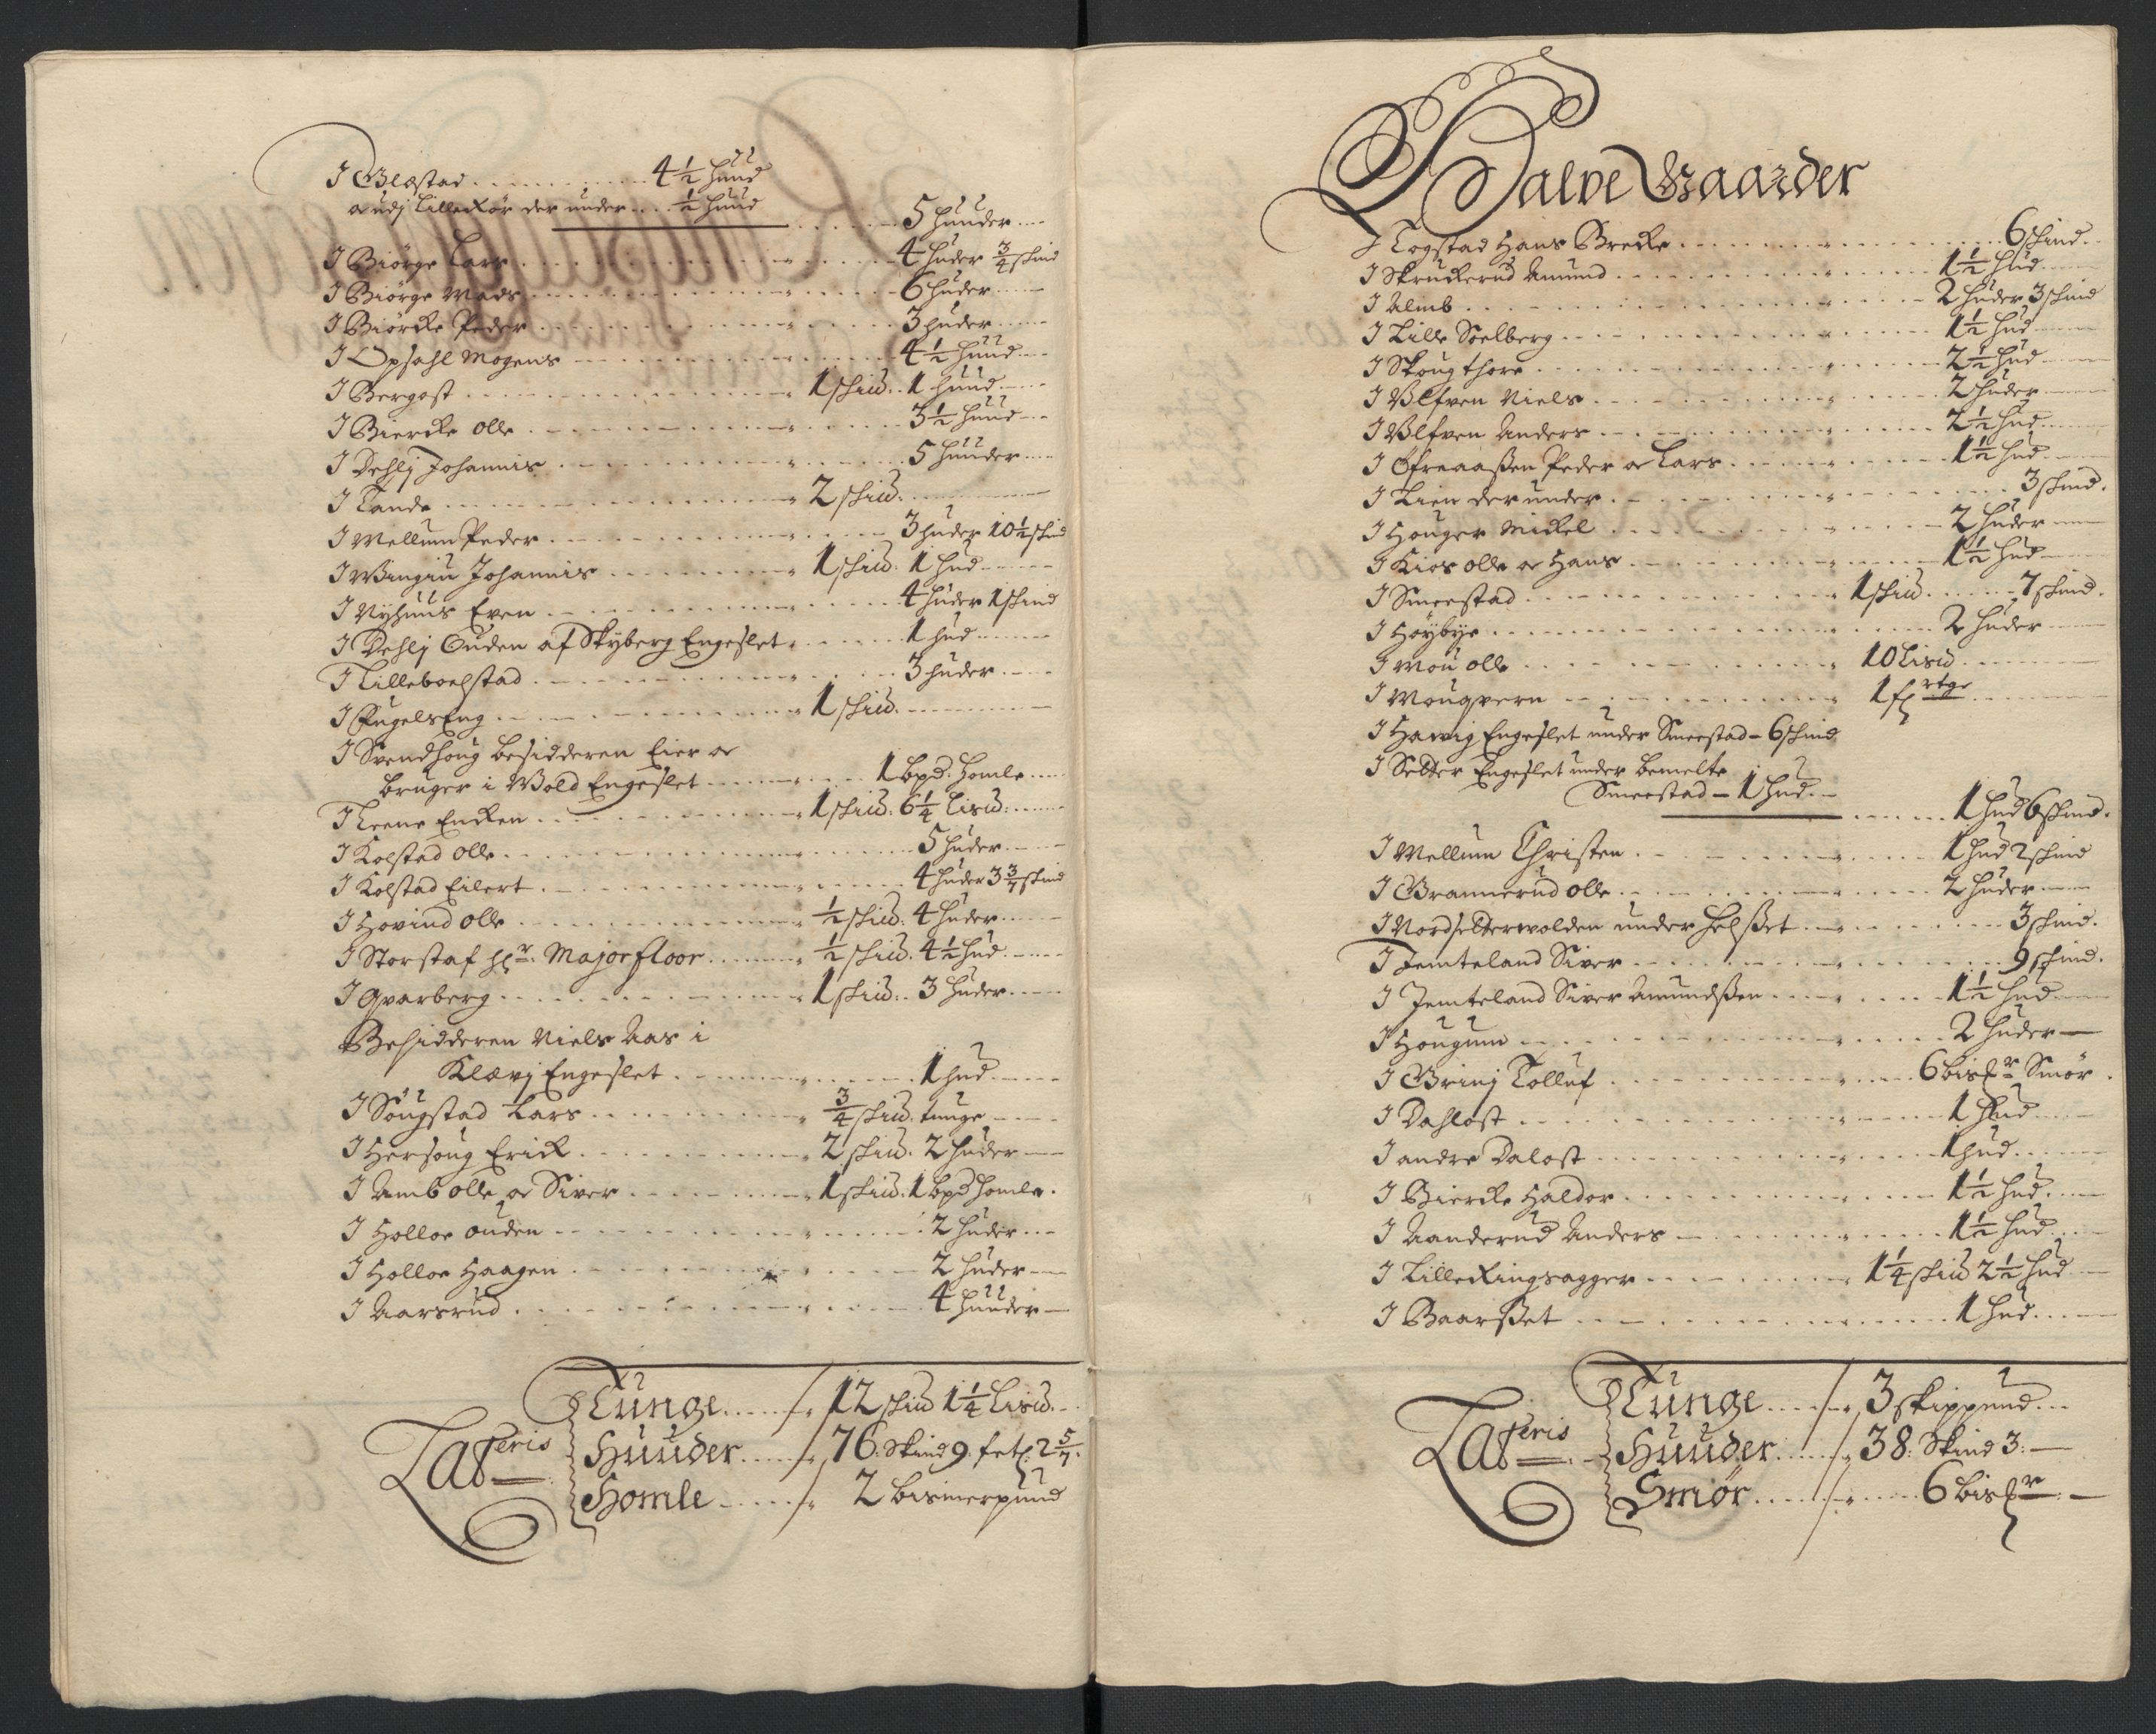 J Glæstad . . . . . 4½ Huud
a udj Lilleckør der under . . . ½ Huud
5 Huuder
J Biørge Lars . . . . 4 Huder ¾ skind
J Biørge Mads . . . . 6 Huder
J Biørcke Peder . . . . 3 huder
J Opsahl Mogens . . . . 4½ Huud
J Bergost . . . . 1 skiu. 1 huud
J Biercke Olle . . . . 3½ Huud
J Dehlj Johannis . . . . 5 Huuder
J Tande . . . . 2 skiu.
J Mellum Peder . . . . 3 huder 10½ skind
J Wingiu Johannis . . . . 1 skiu. 1 hud
J Nyhuus Even . . . . 4 huder 1 skind
J Dehlj Ouden af Skyberg Engeslet . . . 1 hud
J Lilleboelstad . . . . 3 huder
J Fugelseng . . . . 1 skiu.
J Svendhoug besidderen Eier oc
bruger i Wold Engeslet . . . . 1 bpd. Homle
J Leene Encken . . . . 1 skiu: 6¼ Lisu:
J Kolstad Olle . . . . 5 huder
J Kolstad Eilert . . . . 4 huder 3 3/7 skind
J Hovind Olle . . . . ½ skiu. 4 huder
J Storstaf Hr. Major Floor . . . . ½ skiu. 4½ hud
J Qvarberg . . . . 1 skiu. 3 huder
Besidderen Niels Aas i
Klævj Engeslet . . . . 1 hud
J Sougstad Lars . . . . ¾ skiu. tunge
J Hersoug Erick . . . . 2 skiu. 2 huder
J Amb Olle oc Siver . . . . 1 skiu. 1 bpd homle.
J Holloe Ouden . . . . 2 huder
J Holloe Haagen . . . . 2 huder
J Aarsrud . . . . 4 huuder
Tunge . . . . 12 skiu 1¼ Lisu.
Lateris Huuder . . . . 76. Skind 9. fetl: 2 5/7.
Homle . . . . 2 bismerpund
Halve Gaarder
J Togstad Hans Brecke . . . . 6 skind
J Skruckerud Amund . . . . 1½ hud
J Almb . . . . 2 huder 3 skind
J Lille Soelberg . . . . 1½ hud
J Skoug Thore . . . . 2½ hud
J Ulfven Niels . . . . 2 huder
J Ulfven Anders . . . . 2½ hud
J Øfreaaßen Peder oc Lars . . . . 1½ hud
J Lien der under . . . . 3 skind.
J Houger Mickel . . . . 2 huder
J Kios Olle oc Hans . . . . 1½ hud
J Smeestad . . . . 1 skiu. 7 skind.
J Høybye . . . . 2 huder
J Mou Olle . . . . 10 Lisu
J Mouqvern . . . . 1 frtge
J Harvig Engeslet under Smeestad - 6 skind
J Setter Engeslet under bemelte
Smeestad - 1 hud
1 hud 6 skind.
J Mellum Christen . . . . 1 hud 2 skind
J Grannerud Olle . . . . 2 huder
J Nordsetterwolden under helßet . . . . 3 skind.
J Jemteland Siver . . . . 9 skind.
J Jemteland Siver Amundßen . . . . 1½ hud
J Hougum . . . . 2 huder
J Grinj Tolluf . . . . 6 bismr Smør
J Dahlost . . . . 1 hud
J andre Dalost . . . . 1 hud
J Biercke Haldor . . . . 1½ hud
J Aanderud Anders . . . . 1½ hud
J Lilleringsagger . . . . 1¼ skiu 2½ hud
J Baarßet . . . . 1 hud
Tunge . . . . 3 skippund
Lateris Huuder . . . . 38. Skind 3.
Smør . . . . 6 bismr